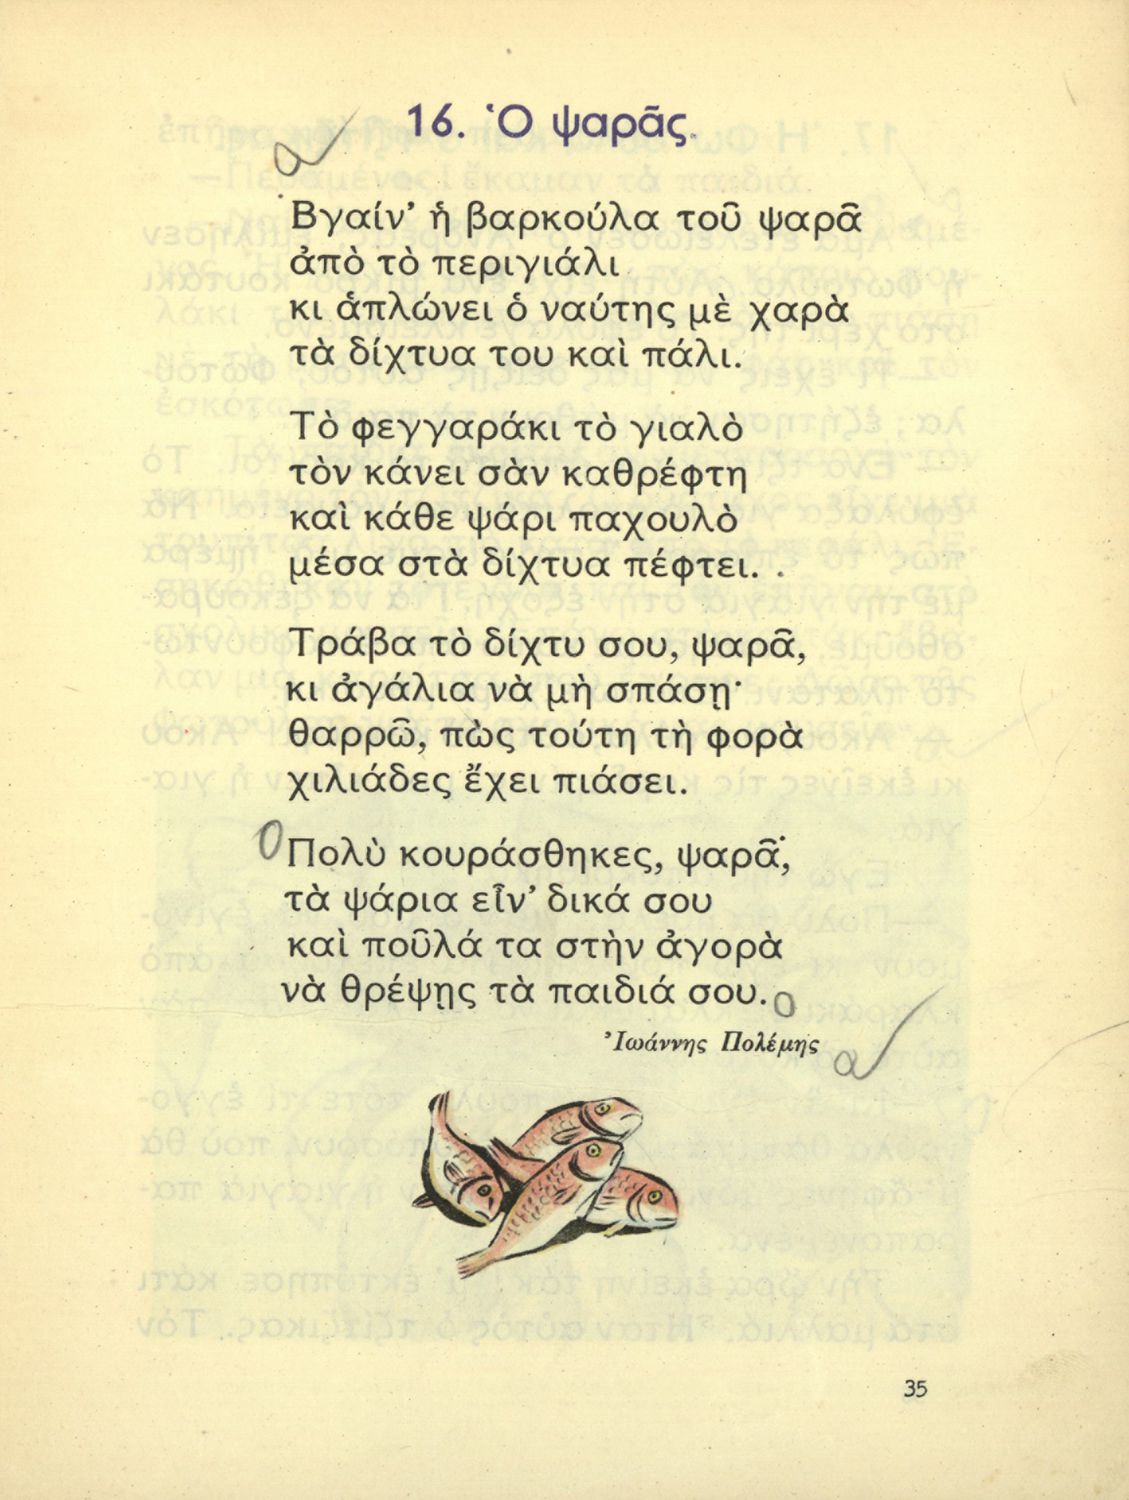 16. Ὁ ψαρᾶς.
Βγαίν’ ἡ βαρκούλα τοῦ ψαρᾶ
ἀπὸ τὸ περιγιάλι
κι ἁπλώνει ὁ ναύτης μὲ χαρὰ
τὰ δίχτυα του καὶ πάλι.
Τὸ φεγγαράκι τὸ γιαλὸ
τὸν κάνει σὰν καθρέφτη
καὶ κάθε ψάρι παχουλὸ
μέσα στὰ δίχτυα πέφτει.
Τράβα τὸ δίχτυ σου, ψαρᾶ,
κι ἀγάλια νὰ μὴ σπάσῃ·
θαρρῶ, πὼς τούτη τὴ φορὰ
χιλιάδες ἔχει πιάσει.
Πολὺ κουράσθηκες, ψαρᾶ,
τὰ ψάρια εἶν’ δικά σου
καὶ ποῦλά τα στὴν ἀγορὰ
νὰ θρέψῃς τὰ παιδιά σου.
Ἰωάννης Πολέμης
35